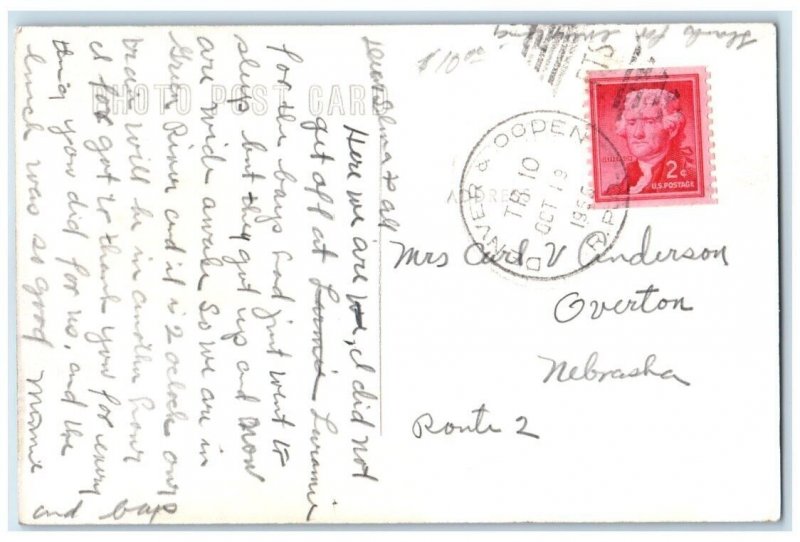 Thanks for everything
$10.00
PHOTO POST CARD
ADDRESS
DENVER & OGDEN
TR 10
OCT 19
1956
R.P.O.
2¢
U.S. POSTAGE
Mrs Carl V Anderson
Overton
Nebraska
Route 2
Dear Alma & all
Here we are, I did not
get off at Laramie
for the boys had just went to
sleep but they got up and now
are wide awake So we are in
Green River and it is 2 oclock ours
will be in another hour
I for got to thank you for every
thing you did for us, and the
lunch was so good Mamie
and boys